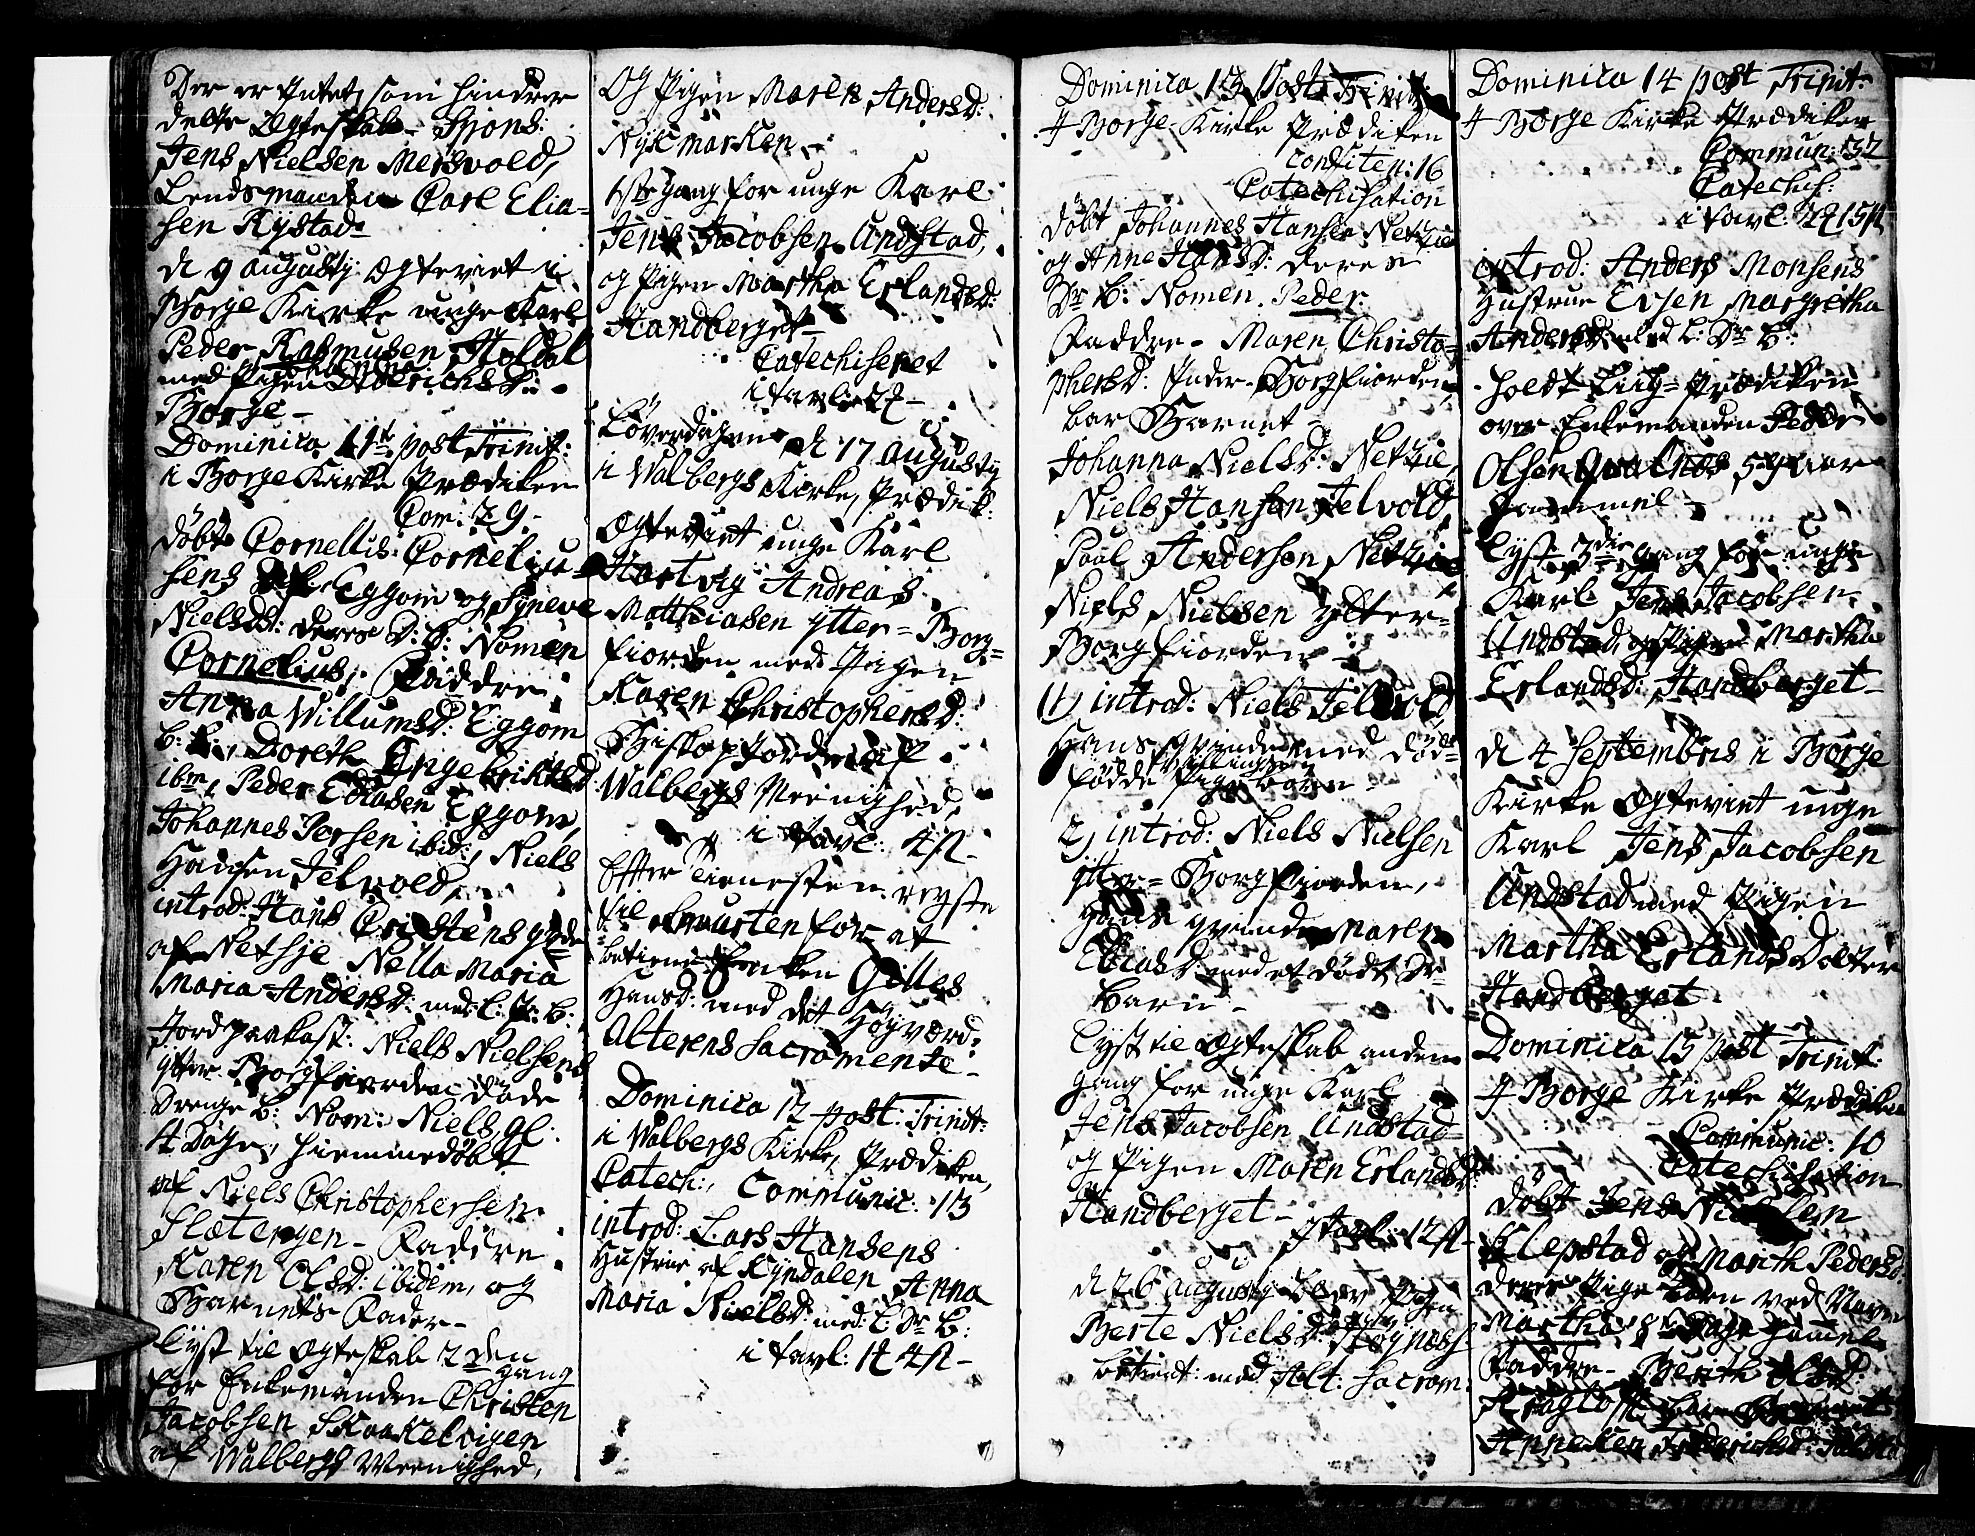 Der er Intet, som hindrer
dette Ægteskab. Spons:
Jens Nielsen Mersvold,
Lendsmanden Carl Elia=
sen Rystad.
d: 9 augusty Ægteviet i
Borge Kirke unge Karl
Peder Rasmusen Holdal
med Pigen Diderichsd:
Borge -
Dominica 11te post Trinit:
i Borge Kirke Prædiken
Com: 29.
døbt Cornellis Corneliu=
sens af Eggom og Syneve
Nielsd: deres D: B: Nomen
Cornelius, Faddre
Anna Willumsd: Eggom
b: B:, Doreth Engebriktsd:
ibm, Peder Ediasen Eggom,
Johannes Persen ibid:, Niels
Hansen Jelvold,
introd: Hans Cristens qvde
af Netsje Nella Maria
Maria Andersd: med l: Dr: B:
Jordpaakast: Niels Nielsens
ytter Borgfiorden døde
Drenge B: Nom: Niels, gl:
4 Dage, hiemmedøbt
af Niels Christophersen
Slætengen - Faddre
Karen Olsd: ibidem, og
Barnets Fader -
Lyst til Ægteskab 2den
gang
for Enkemanden Christen
Jacobsen Skaakelvigen
af Walbergs Meenighed,
Og Pigen Maren Andersd:
Nycmarken -
1ste gang for unge Karl
Jens Jacobsen Undstad,
og Pigen Martha Erlandsd:
Handberget -
Catechiseret
i tavle 27 -
Løverdagen d 17 augusty
i Walbergs Kirke, Prædik:
Ægteviet unge Karl
Hartvig Andreas
Matthiasen ytter=Borg=
fiorden med Pigen
Karen Christophersd:
Biskopjorden af
Walbergs Meenighed,
i tavl: 4 sl -
Efter Tienesten reyste
til Smurten for at
betiene Enken Gilles
Hansd: med det Høyværd:
Alterens Sacramente -
Dominica 12 post: Trinit:
i Walbergs Kirke, Prædiken,
Catech:, Communic: 13
introd: Lars Hansens
Hustrue af Ryndalen Anna
Maria Nielsd: med l: Dr B:
i tavl: 14 sl -
Dominica 13 Post Trinit:
I Borge Kirke Prædiken
confiten: 16
Catechisation
døbt Johannes Hansen Netzie
og Anne Hansd: deres
Dr B: Nomen Peder:
Faddre - Maren Christo=
phersd: Inder-Borgfiorden
bar Barnet -
Johanna Nielsd: Netzie,
Niels Hansen Jelvold
Paal Andersen Netzie
Niels Nielsen ytter=
Borgfiorden -
1) introd: Niels Jelvold
Hans qvinde med død=
Tvillinger
fødde Pige børn -
2) introd: Niels Nielsen
ytter=Borgfiorden,
Hans qvinde Maren
Eliasd: med et dødt Dr
Barn -
Lyst til Ægteskab anden
gang for unge Karl
Jens Jacobsen Undstad
og Pigen Maren Erlandsd:
Handberget -
I tavl: 12 sl -
d 26 augusty blev Pigen
Berte Nielsd: Høynæs
betient med Alt: Sacram:
Dominica 14 post Trinit:
I Borge Kirke Prædiken
Commun: 32
Catechis:
i tavl: 15 sl
introd: Anders Monsens
Hustrue Evsen Margretha
Andersd: med l: Dr B:
holdt Liig=Prædiken
over Enkemanden Peder
Olsen Qvalnæs 59 aar
Gammel -
Lyst 3die gang for unge
Karl Jens Jacobsen
Undstad, og Pigen Martha
Erlandsd: Handberget -
d 4 Septembris i Borge
Kirke Ægteviet unge
Karl Jens Jacobsen
Undstad med Pigen
Martha Erlands Datter
Handberget
Dominica 15 post Trinit:
I Borge Kirke Prædiken
Communic: 10
Catechisation
døbt Jens Nielsen
Klepstad og Marith Pedersd:
deres Pige Barn ved Navn
Martha, 8te Dage gammel
Faddre - Berith Olsd:
bar Barnet
Anneken Friderichsd: